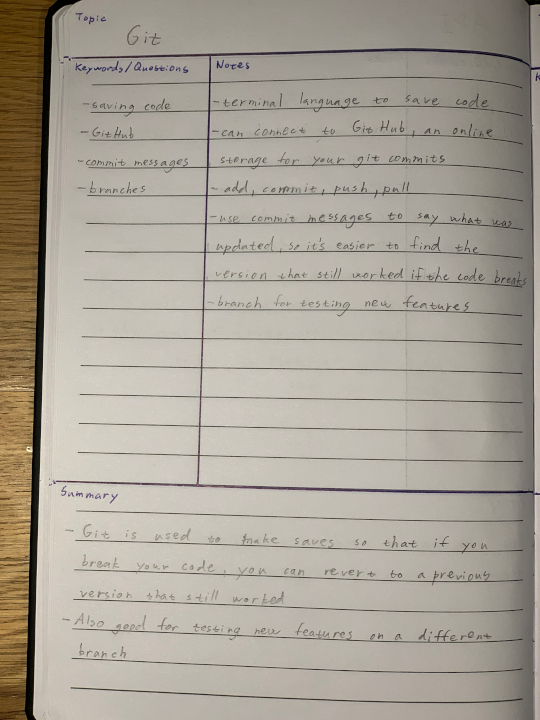 Topic
Git
Keywords/Questions
Notes
-saving code
-GitHub
-commit messages
-branches
-terminal language to save code
-can connect to GitHub, an online
storage for your git commits
- add, commit, push, pull
-use commit messages to say what was
updated, so it's easier to find the
version that still worked if the code breaks
-branch for testing new features
Summary
- Git is used to make saves so that if you
break your code, you can revert to a previous
version that still worked
-Also good for testing new features on a different
branch